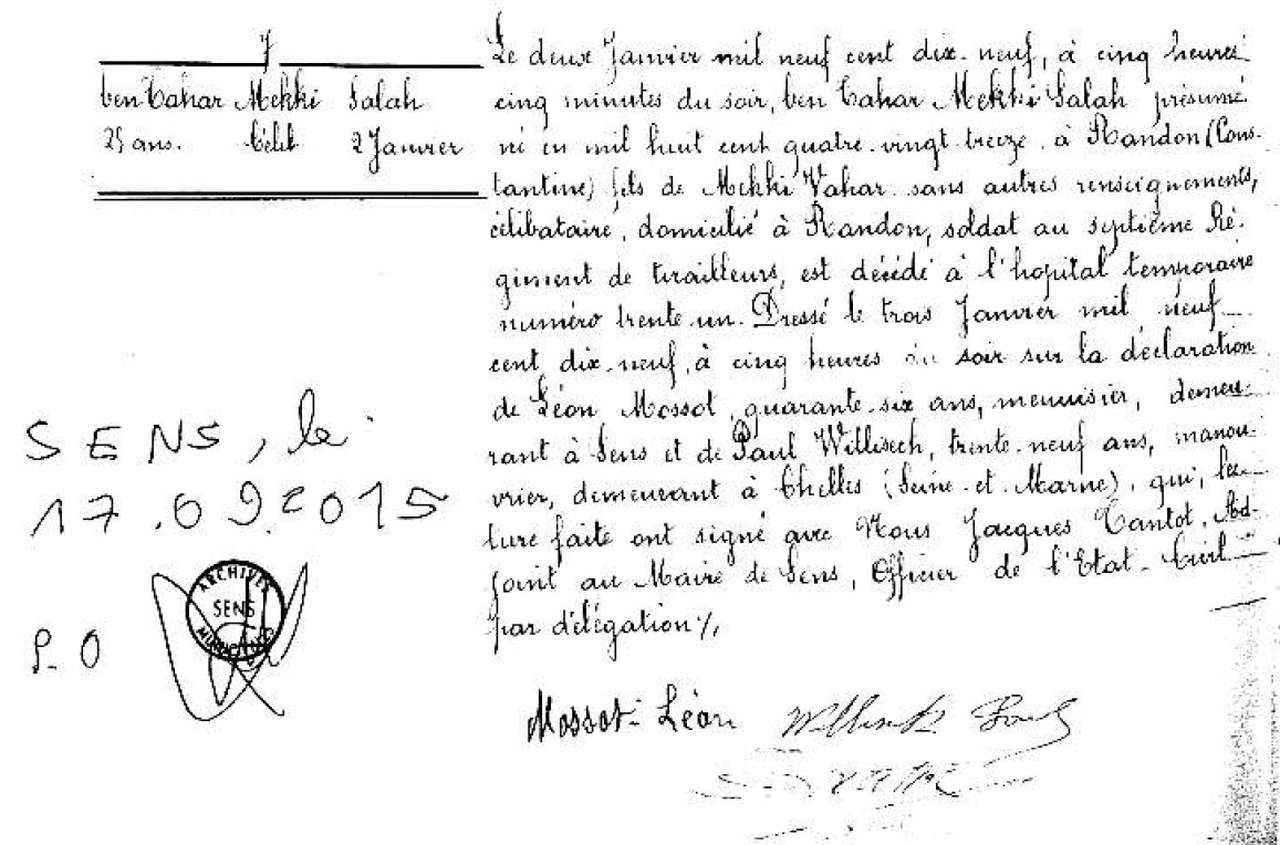 7
ben Tahar Mekki Salah
25 ans. Célib 2 Janvier
Le deux Janvier mil neuf cent dix-neuf, à cinq heures
cinq minutes du soir, ben Tahar Mekki Salah présumé
né en mil huit cent quatre-vingt treize à Randon (Cons-
tantine) fils de Mekki Tahar sans autres renseignements,
célibataire, domicilié à Randon, soldat au septième Ré-
giment de tirailleurs, est décédé à l'hopital temporaire
numéro trente-un. Dressé le trois Janvier mil neuf
cent dix-neuf, à cinq heures du soir sur la déclaration
de Léon Mossot, quarante-six ans, menuisier, demeu-
rant à Sens et de Paul Willisech, trente-neuf ans, manou-
vrier, demeurant à Chelles (Seine-et-Marne), qui, lec-
ture faite ont signé avec Nous Jacques Tantot, Ad-
joint au Maire de Sens, Officier de l'Etat-Civil
par délégation ./.
SENS, le
17.09.2015
P.O
ARCHIVES
SENS
MUNICIPALES
Mossot Léon